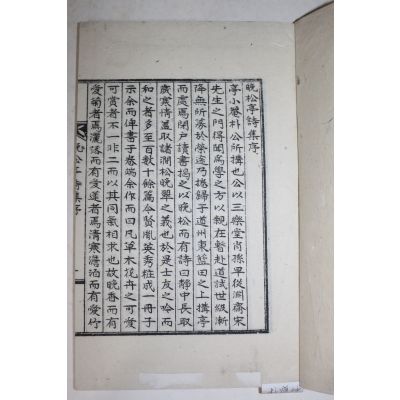 晩松亭詩集序
亭小菴朴公所搆也公以三樂堂肖孫早從淵齋宋
先生之門得聞爲學之方以親在暫赴道試世級漸
降無所求於榮途乃捲歸于道州東藍田之上搆亭
而處焉閉戶讀書揭之以晩松而有詩曰靜中長取
歲寒情盖取諸澗松晩翠之義也於是士友之吟而
和之者多至百數十餘篇今賢胤英秀粧成一冊子
示余而俾書于卷端余作而曰凡草木花卉之可愛
可賞者不一非二而以其同氣相求也故晩香而有
愛菊者焉灑落而有愛蓮者焉淸寒澹泊而有愛竹
晩松亭詩集序
一